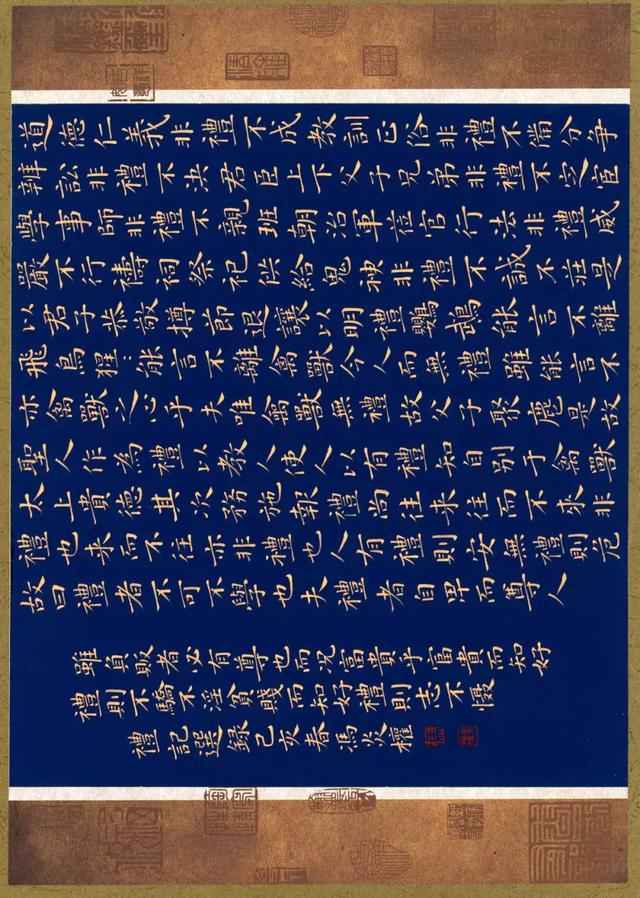 道德仁義非禮不成教訓正俗非禮不備分争
辨訟非禮不決君臣上下父子兄弟非禮不定宦
學事師非禮不親班朝治軍莅官行法非禮威
嚴不行禱祠祭祀供給鬼神非禮不誠不莊是
以君子恭敬撙節退讓以明禮鸚鵡能言不離
飛鳥猩〻能言不離禽獸今人而無禮雖能言不
亦禽獸之心乎夫唯禽獸無禮故父子聚麀是故
聖人作為禮以教人使人以有禮知自别于禽獸
太上貴德其次務施報禮尚往来往而不來非
禮也来而不往亦非禮也人有禮則安無禮則危
故曰禮者不可不學也夫禮者自卑而尊人
雖負販者必有尊也而况富貴乎富貴而知好
禮則不驕不淫貧賤而知好禮則志不慑
禮記選録己亥春馮炎